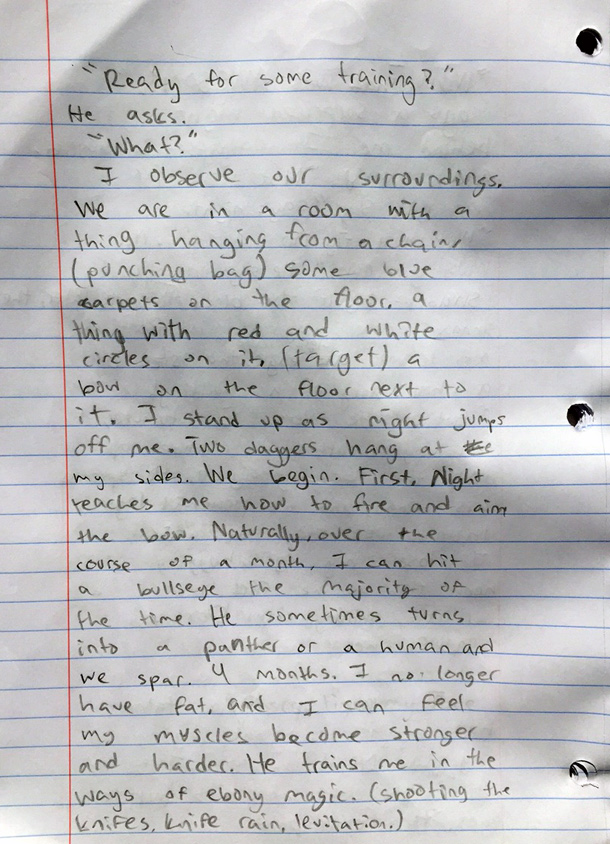 "Ready for some training?"
He asks.
"What?"
I observe our surroundings.
We are in a room with a
thing hanging from a chain,
(punching bag) some blue
carpets on the floor, a
thing with red and white
circles on it, (target) a
bow on the floor next to
it. I stand up as night jumps
off me. Two daggers hang at
my sides. We begin. First, Night
teaches me how to fire and aim
the bow. Naturally, over the
course of a month, I can hit
a bullseye the majority of
the time. He sometimes turns
into a panther or a human and
we spar. 4 months. I no longer
have fat, and I can feel
my muscles become stronger
and harder. He trains me in the
ways of ebony magic. (shooting the
knifes, knife rain, levitation.)